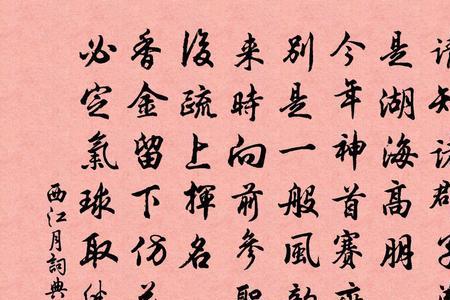 是湖海高朋
今年神首賽齊
別是一般風
来時向前参聖
後疏上揮名
香金留下仿
必定氣球取
西江月詞典